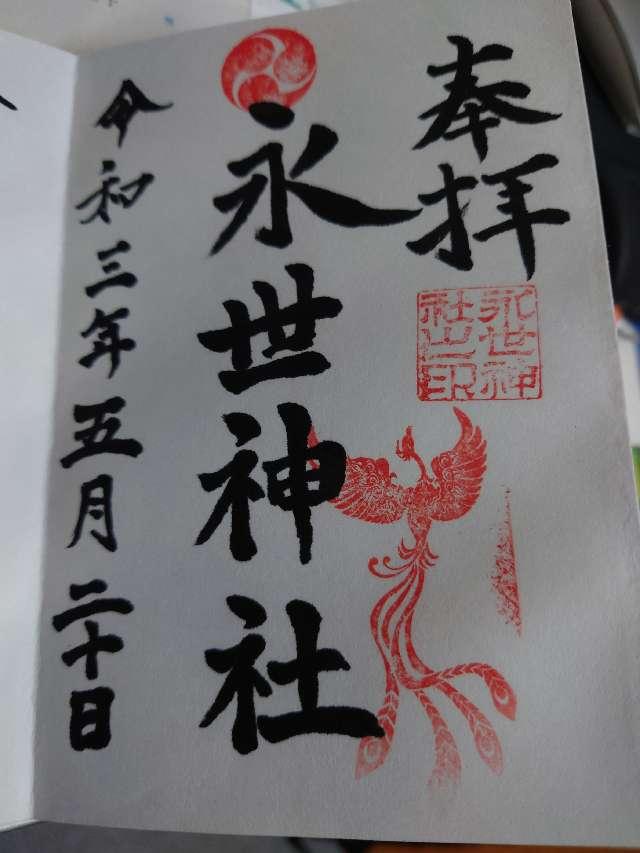 奉拝
永世神社之印
永世神社
令和三年五月二十日